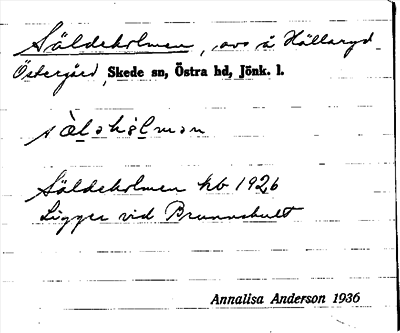 Säldeholmen, avs å Hällaryd
Östergård, Skede sn, Östra hd, Jönk. l.
Säldeholmen kb 1926
Ligger vid Brunnshult
Annalisa Anderson 1936